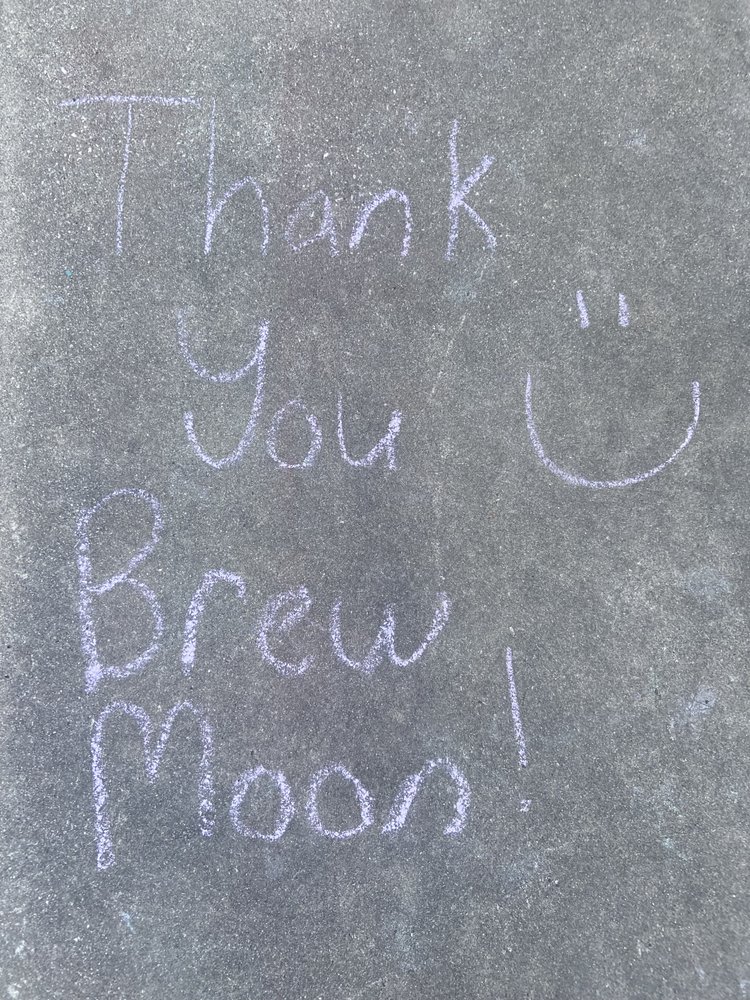 Thank
You
Brew
Moon!